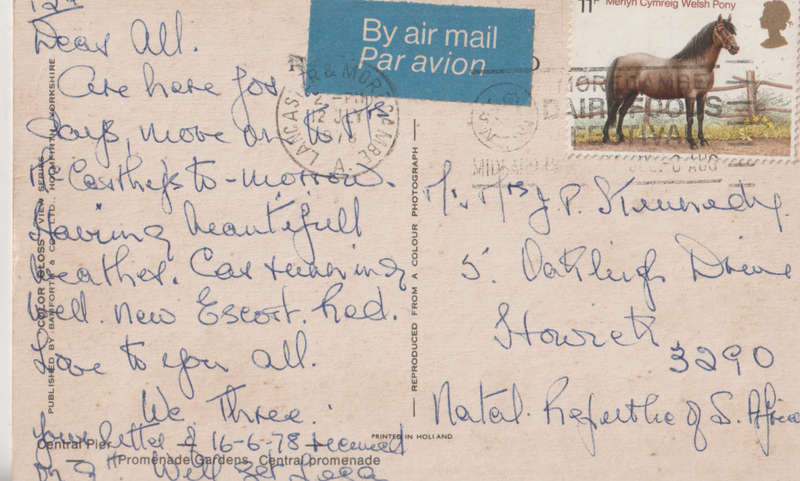 Dear All.
Are here for
days, move on to Mrs
to-morrow.
Having beautifull
weather. Car running
well. New Escort. Red.
Love to you all.
We Three.
Your letter of 16-6-78 received
on
By air mail
Par avion
11P
Merlyn Cymreig Welsh Pony
LANCASTER & MORECAMBE
12 JLY
1978
A
MORECAMBE
M/s. M/rs J.P. Kennedy.
5. Oakleigh Drive
Howick
3290
Natal. Republic of S. Africa
COLOR GLOSS VIEW SERIES
PUBLISHED BY BAMFORTH & CO. LTD. HOLMFIRTH YORKSHIRE
REPRODUCED FROM A COLOUR PHOTOGRAPH
PRINTED IN HOLLAND
Central Pier
Promenade Gardens, Central promenade